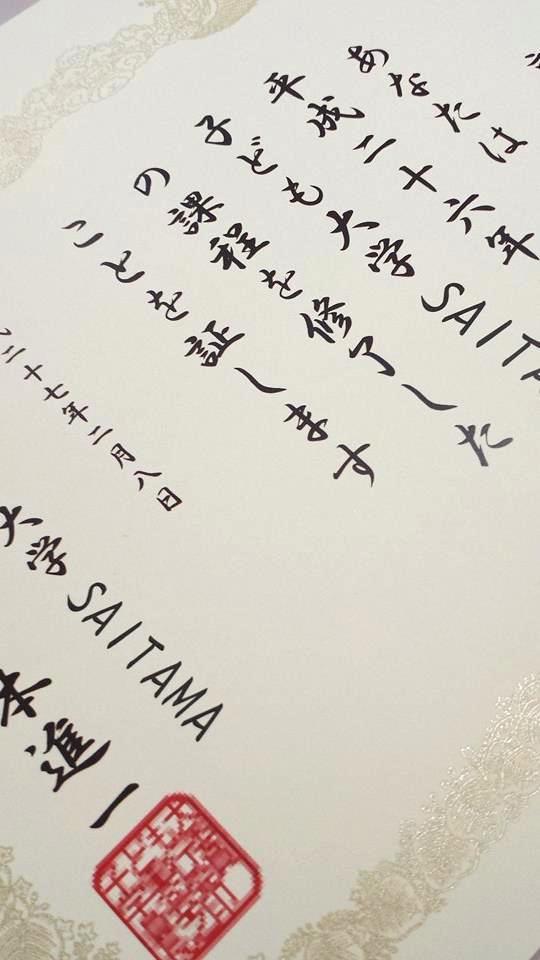 あなたは
平成二十六年
子ども大学SAITA
の課程を修了した
ことを証します
二十七年二月八日
大学SAITAMA
本進一